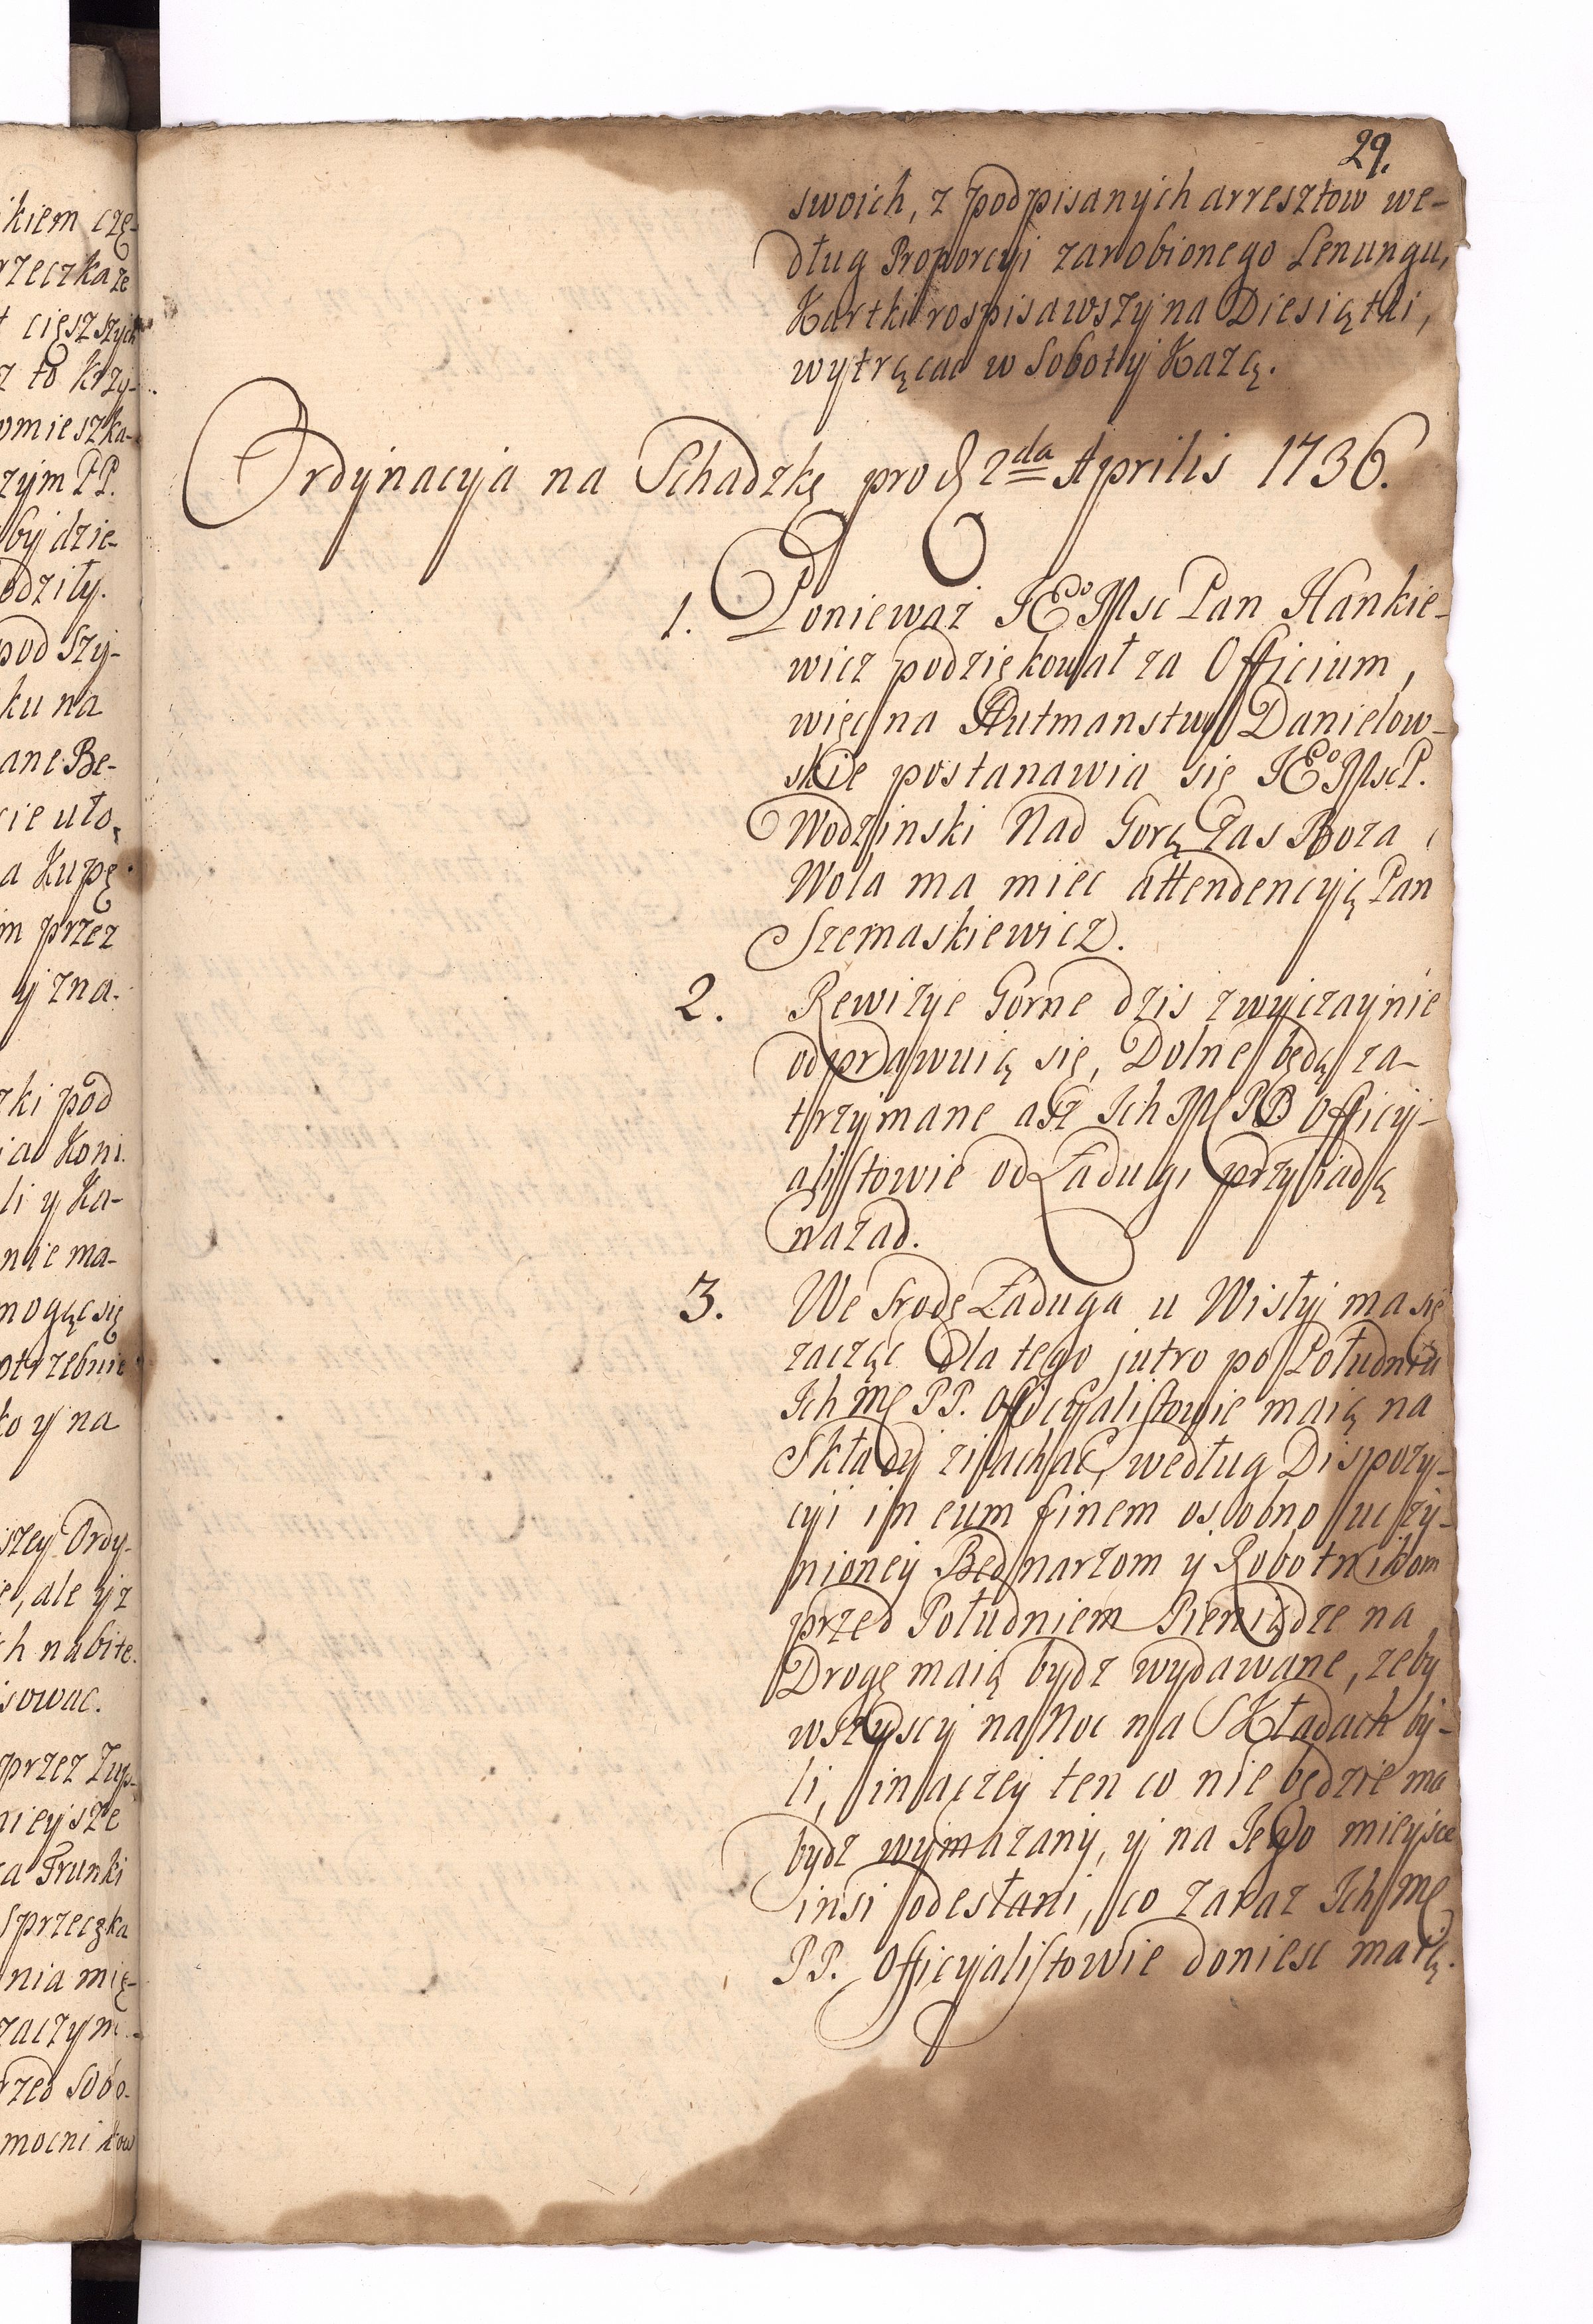 29.
swoich, z podpisanych arresztow we-
dług Proporcyi zarobionego Lenungu,
Kartki rospisawszy na Diesiątki,
wytrącac w Soboty Kazą.
Ordynacyja na Schadzkę pro 2da Aprilis 1736.
1. Poniewaz JEoMsc Pan Hankie-
wicz podziękował za Officium,
więc na Hutmanstwo Danielow-
skie postanawia się JEoMsc P.
Wodzinski Nad Gorą zas Boza
Wola ma miec attendencyją Pan
Szemaskiewicz.
2. Rewizye Gorne dzis zwyczaynie
odprawuią się, Dolne będą za-
trzymane asz Ich M PP Officyj-
alistowie od Ładugi przyiadą
nazad.
3. We Srodę Ładuga u Wisły ma się
zacząc dla tego jutro po Południu
Ich Mć PP. Officyalistowie maią na
Składy ziachac, według Dispozy-
cyi in eum finem osobno uczy-
nioney Bednarzom y Robotnikom
przed Południem Pieniądze na
Drogę maią bydz wydawane, zeby
wszyscy na Noc na Składach by-
li, inaczey ten co nie będzie ma
bydz wymazany, y na Jego mieysce
insi odesłani, co zaraz Ich Mć
PP. Officyalistowie doniesc maią.
kiem czę-
rzeczka ze
cięszszych
z to krzy-
wmieszka-
zym PP.
by dzie-
odziły.
pod Szy-
ku na
ane Be-
cie uło
a Kupę
m przez
y zna.
zki pod
ia Koni
li y Ka-
nie ma-
mogąc się
otrzebnie
ko y na
szey Ordy-
ale y z
ch nabite.
isowac.
przez Zup-
nieysze
ca Trunki
Sprzeczka
nia mię-
zaczym
rzed Sobo-
mocnikow